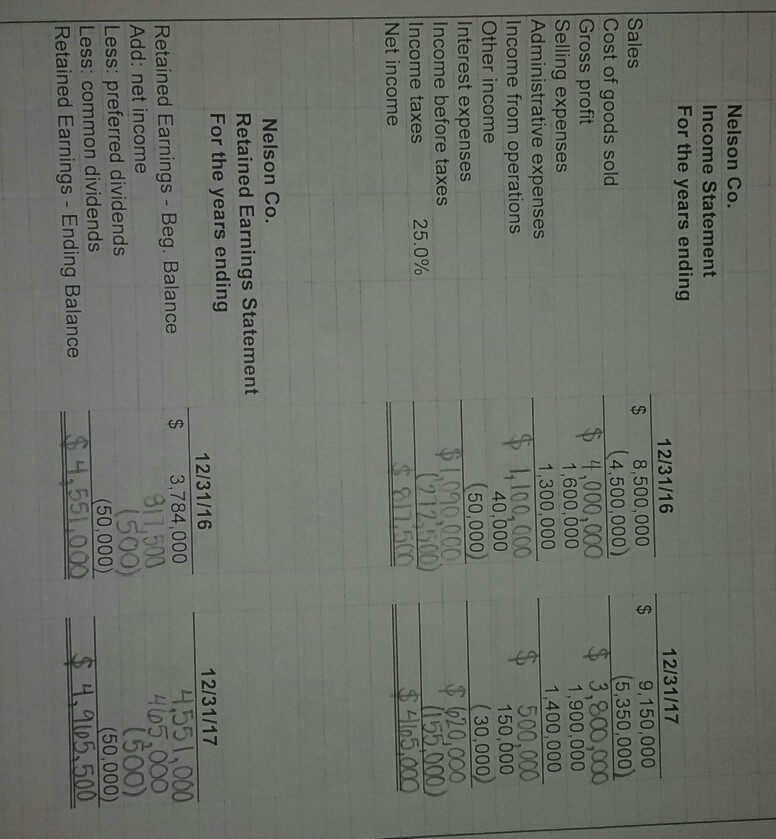 Nelson Co.
Income Statement
For the years ending
12/31/16 12/31/17
Sales $ 8,500,000 $ 9,150,000
Cost of goods sold (4,500,000) (5,350,000)
Gross profit $ 4,000,000 $ 3,800,000
Selling expenses 1,600,000 1,900,000
Administrative expenses 1,300,000 1,400,000
Income from operations $ 1,100,000 $ 500,000
Other income 40,000 150,000
Interest expenses (50,000) (30,000)
Income before taxes $1,090,000 $ 620,000
Income taxes 25.0% (272,500) (155,000)
Net income $ 817,500 $ 465,000
Nelson Co.
Retained Earnings Statement
For the years ending
12/31/16 12/31/17
Retained Earnings - Beg. Balance $ 3,784,000 4,551,000
Add: net income 817,500 465,000
Less: preferred dividends (500) (500)
Less: common dividends (50,000) (50,000)
Retained Earnings - Ending Balance $ 4,551,000 $ 4,965,500